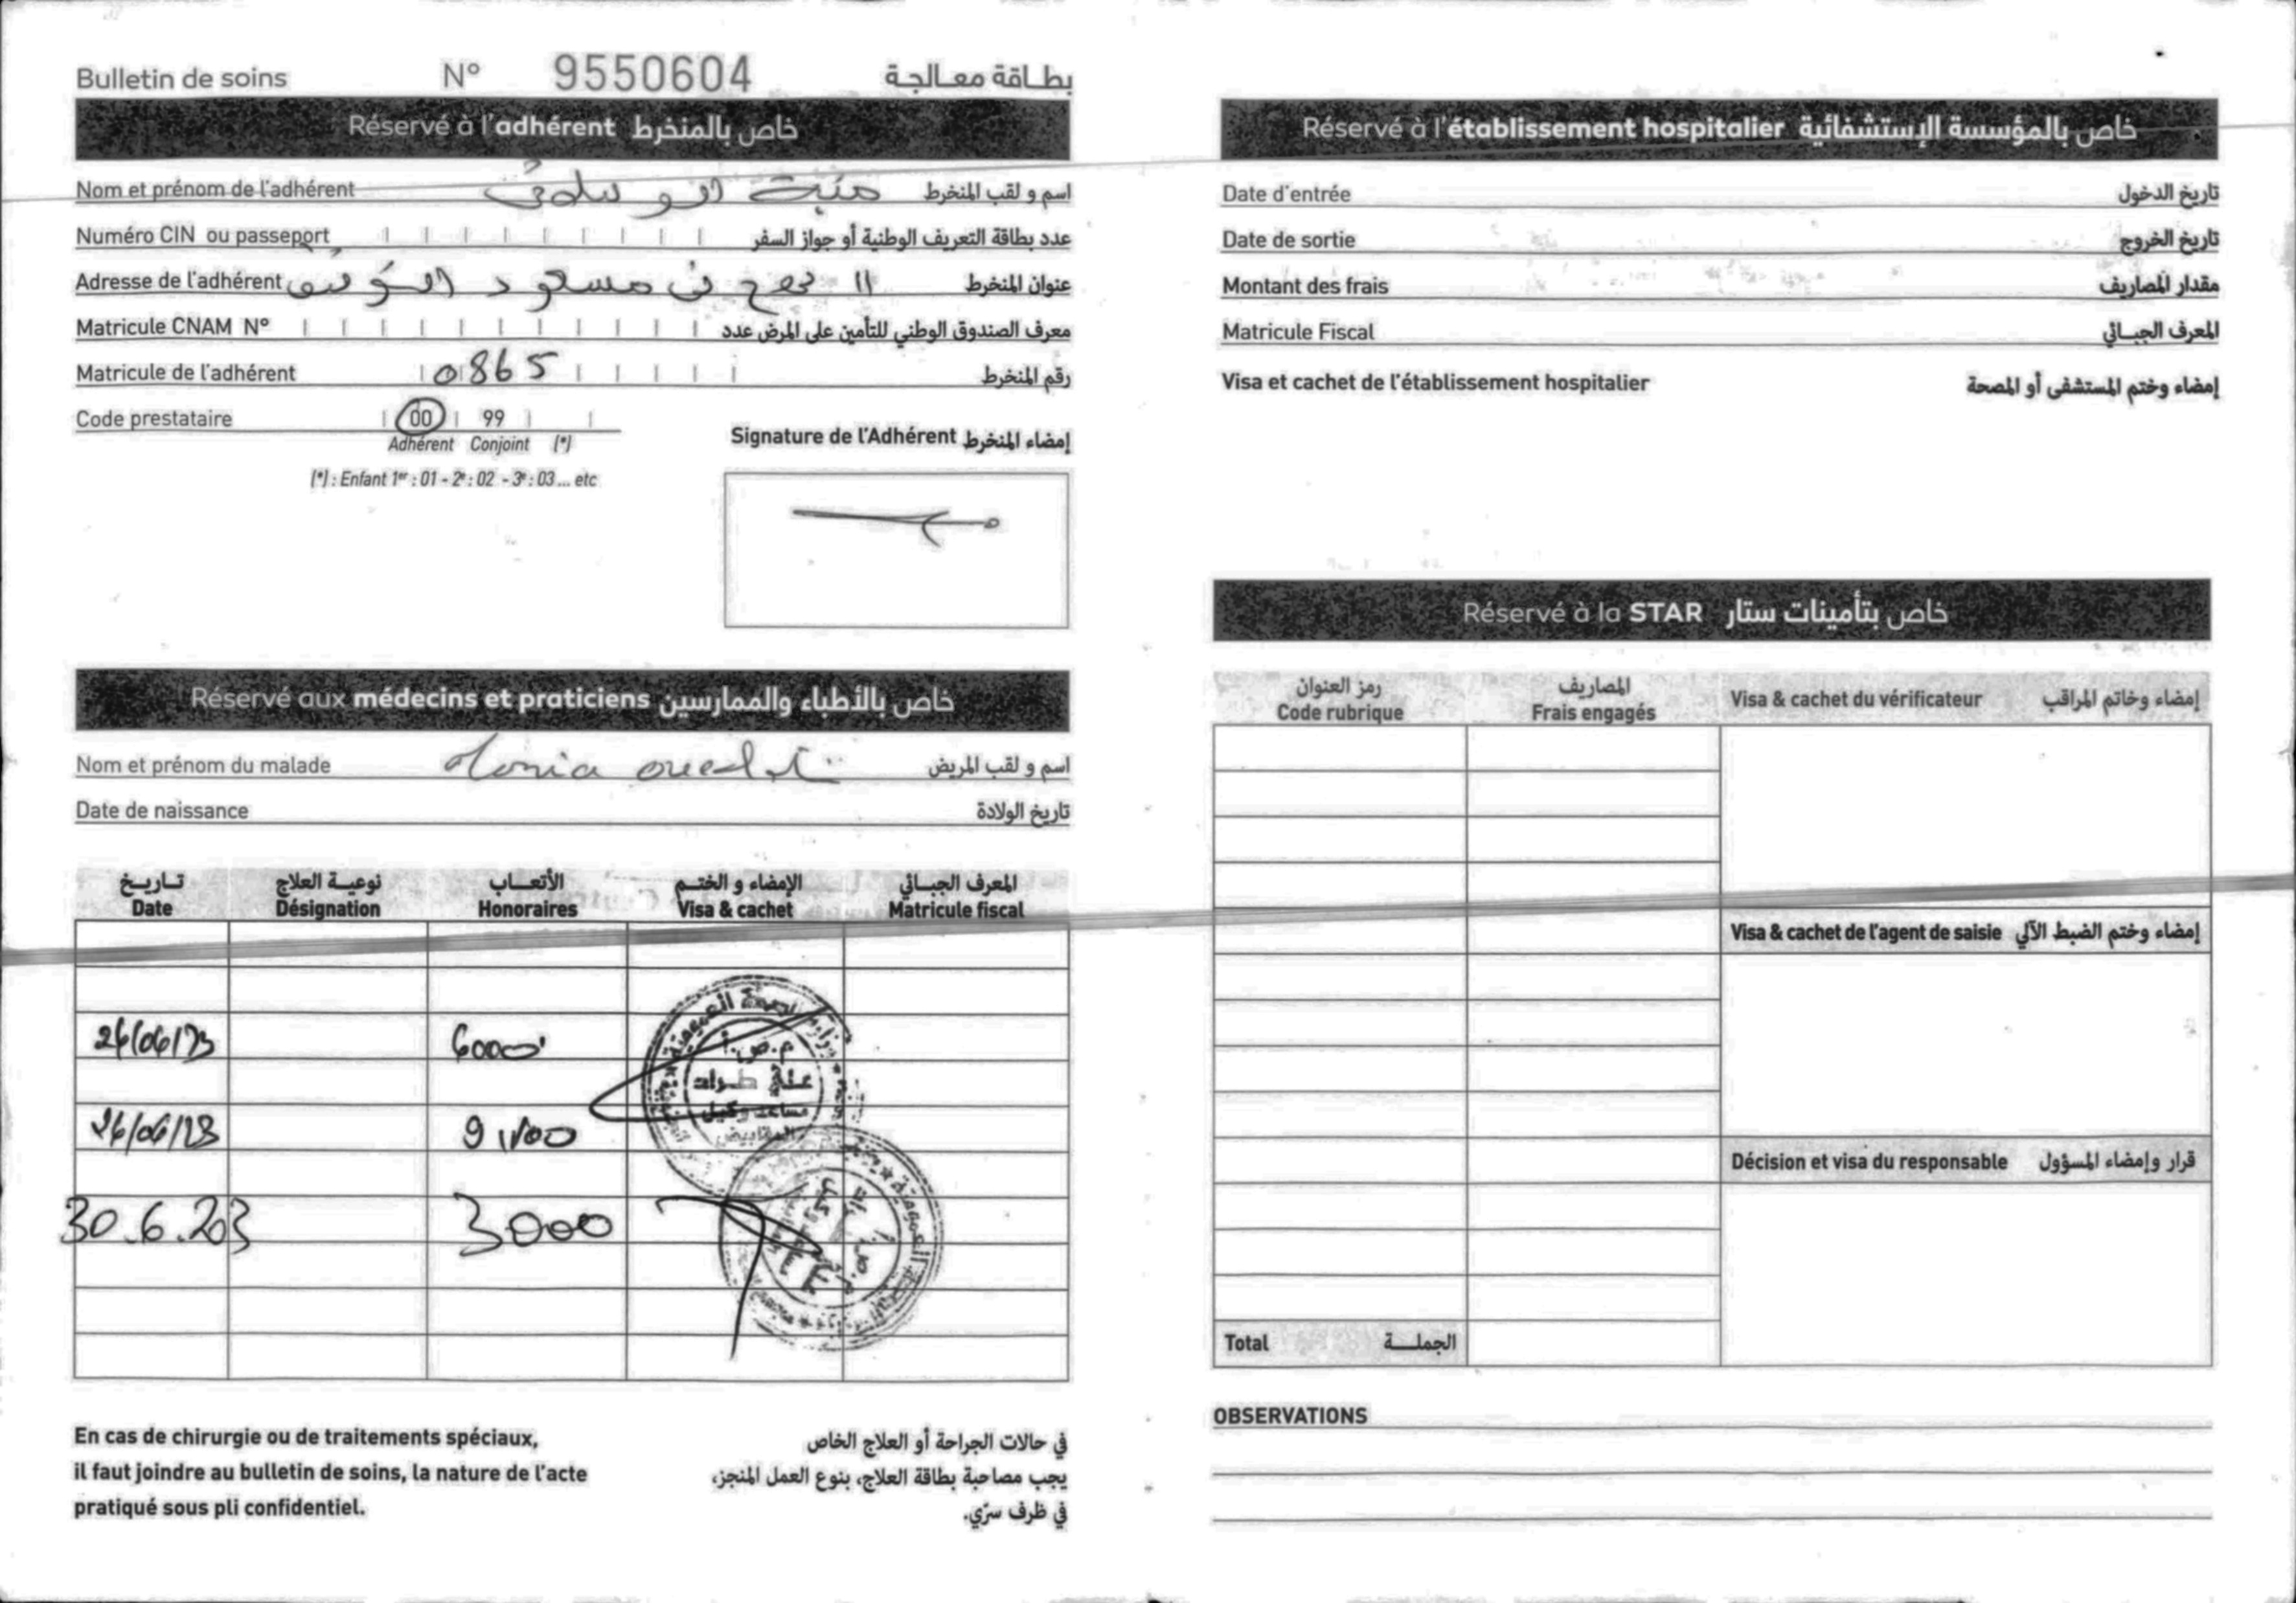 Bulletin de soins N° 9550604 بطاقة معالجة
Réservé à l'adhérent خاص بالمنخرط
Nom et prénom de l'adhérent اسم و لقب المنخرط
Numéro CIN ou passeport عدد بطاقة التعريف الوطنية أو جواز السفر
Adresse de l'adhérent 11 مسعود عنوان المنخرط
Matricule CNAM N° معرف الصندوق الوطني للتأمين على المرض عدد
Matricule de l'adhérent 0865 رقم المنخرط
Code prestataire 00 99
Adhérent Conjoint (*)
(*) : Enfant 1er : 01 - 2e : 02 - 3e : 03 ... etc
Signature de l'Adhérent إمضاء المنخرط
Réservé aux médecins et praticiens خاص بالأطباء والممارسين
Nom et prénom du malade Monia اسم و لقب المريض
Date de naissance تاريخ الولادة
تاريخ نوعية العلاج الأتعاب الإمضاء و الختم المعرف الجبائي
Date Désignation Honoraires Visa & cachet Matricule fiscal
26/06/23 6000
26/06/23 9
30.6.203 3000
En cas de chirurgie ou de traitements spéciaux,
il faut joindre au bulletin de soins, la nature de l'acte
pratiqué sous pli confidentiel.
في حالات الجراحة أو العلاج الخاص
يجب مصاحبة بطاقة العلاج، بنوع العمل المنجز،
في ظرف سرّي.
Réservé à l'établissement hospitalier خاص بالمؤسسة الإستشفائية
Date d'entrée تاريخ الدخول
Date de sortie تاريخ الخروج
Montant des frais مقدار المصاريف
Matricule Fiscal المعرف الجبائي
Visa et cachet de l'établissement hospitalier إمضاء وختم المستشفى أو المصحة
Réservé à la STAR خاص بتأمينات ستار
رمز العنوان المصاريف
Code rubrique Frais engagés Visa & cachet du vérificateur إمضاء وخاتم المراقب
Visa & cachet de l'agent de saisie إمضاء وختم الضبط الآلي
Décision et visa du responsable قرار وإمضاء المسؤول
Total الجملة
OBSERVATIONS